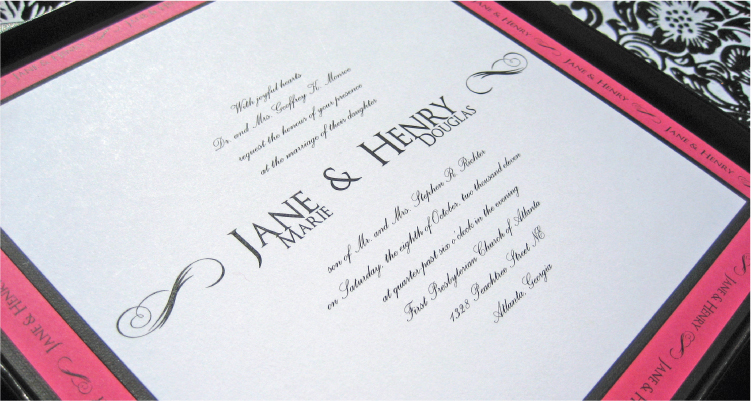 JANE & HENRY
JANE & HENRY
JANE & HENRY
JANE & HENRY
With joyful hearts
Dr. and Mrs. Geoffrey K. Monroe
request the honour of your presence
at the marriage of their daughter
JANE & HENRY
MARIE DOUGLAS
son of Mr. and Mrs. Stephen R. Richter
on Saturday, the eighth of October, two thousand eleven
at quarter past six o'clock in the evening
First Presbyterian Church of Atlanta
1328 Peachtree Street NE
Atlanta, Georgia
JANE & HENRY
JANE & HENRY
JANE & HENRY
JANE & HENRY